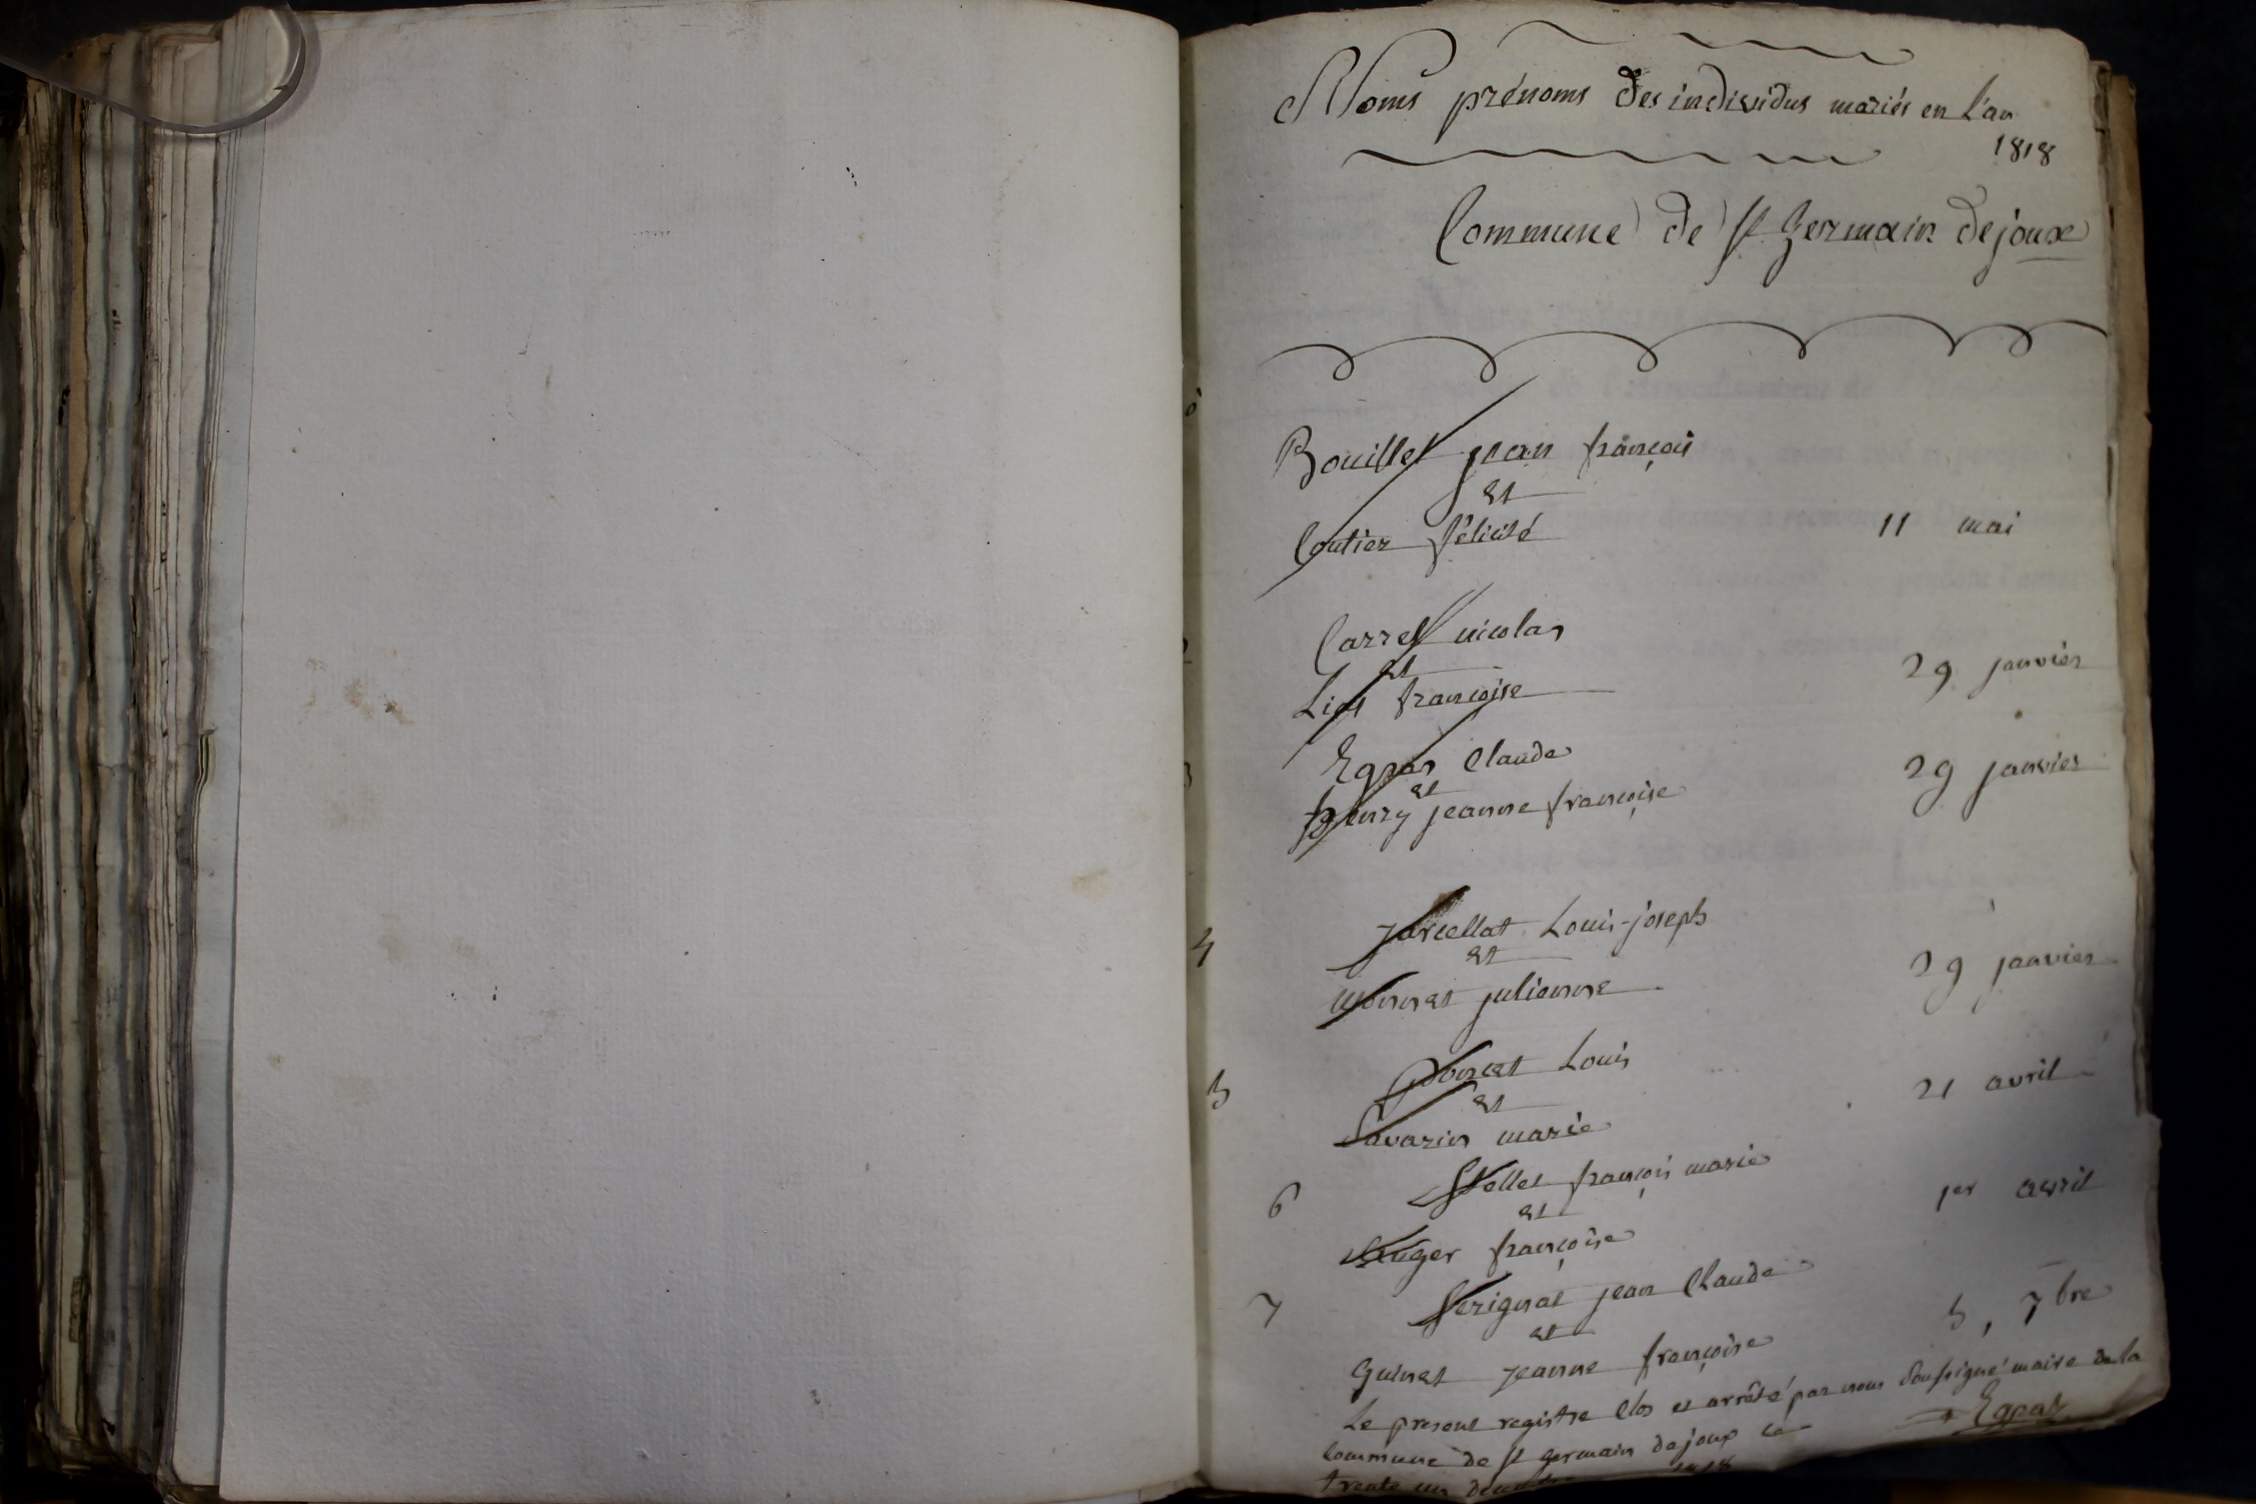 Noms prénoms des individus mariés en l'an
1818
Commune de St Germain dejoux
Bouillet jean françois
Et
Coutier félicité 11 mai
Carrel nicolas
Et
françoise 29 janvier
3
Egraz Claude
Et 29 janvier
henry jeanne françoise
4
Jarcellat Louis-joseph
Et 29 janvier
monnet julienne
5
poncet Louis
Et 21 avril
Savarin marie
6
françois marie
Et 1er avril
françoise
7
Serignat jean Claude
Et 5, 7bre
Guinet jeanne françoise
Le present registre Clos et arrêté par nous Soussigné maire de la
Commune de St germain dejoux Le Egraz
trente un 1818